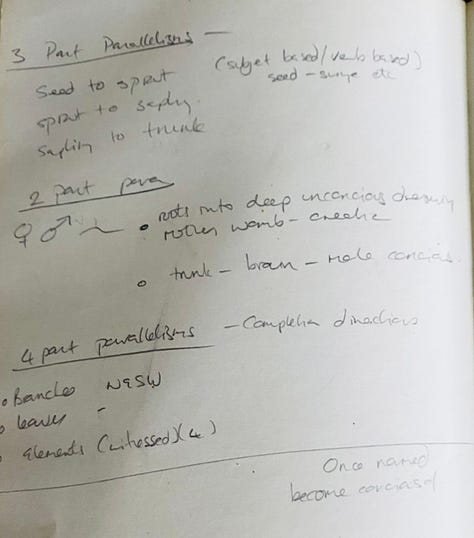 3 Part Parallelisms —
(subject based/verb based)
seed – surge etc
Seed to sprout
sprout to sapling.
sapling to trunk
2 part para
♀ ♂
• roots into deep unconcious dreaming
mother womb – creative
• trunk – brain – male concious.
4 part parallelisms – Completion directions
• Branches NESW
• leaves –
• Elements (witnessed) (4)
Once named
become conciased